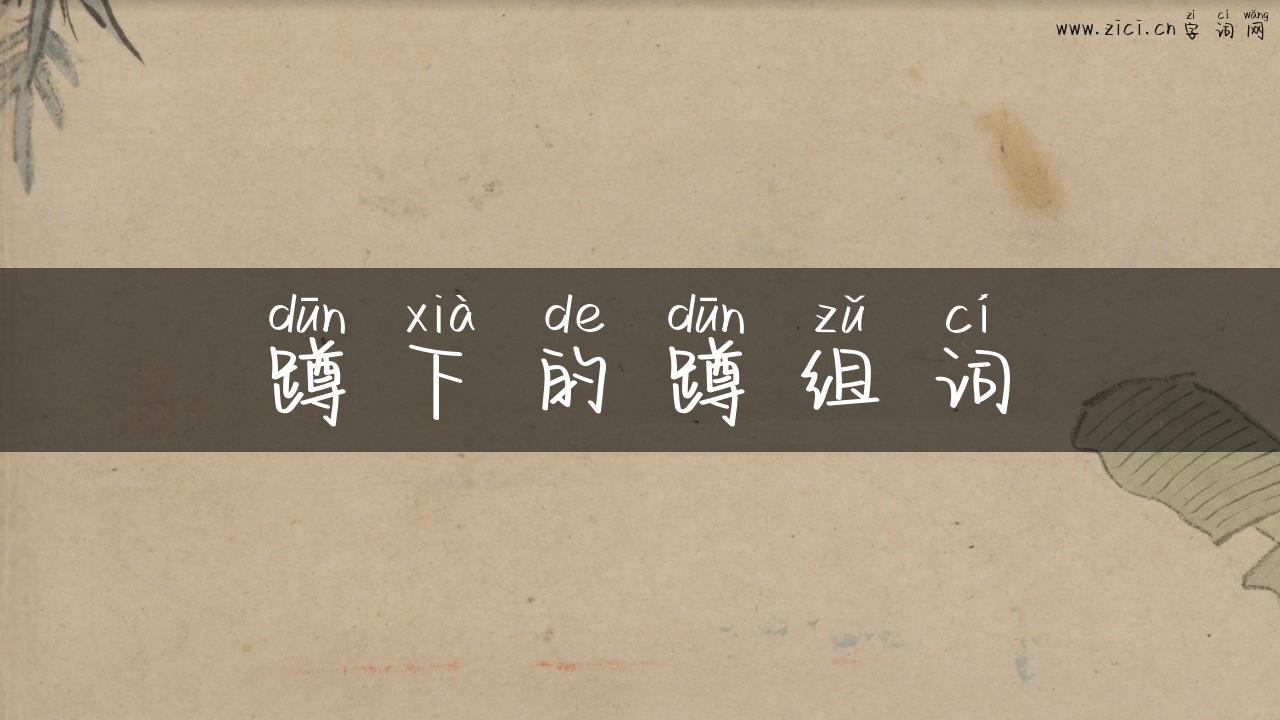 zì cí wǎng
www.zici.cn 字 词 网
dūn xià de dūn zǔ cí
蹲 下 的 蹲 组 词